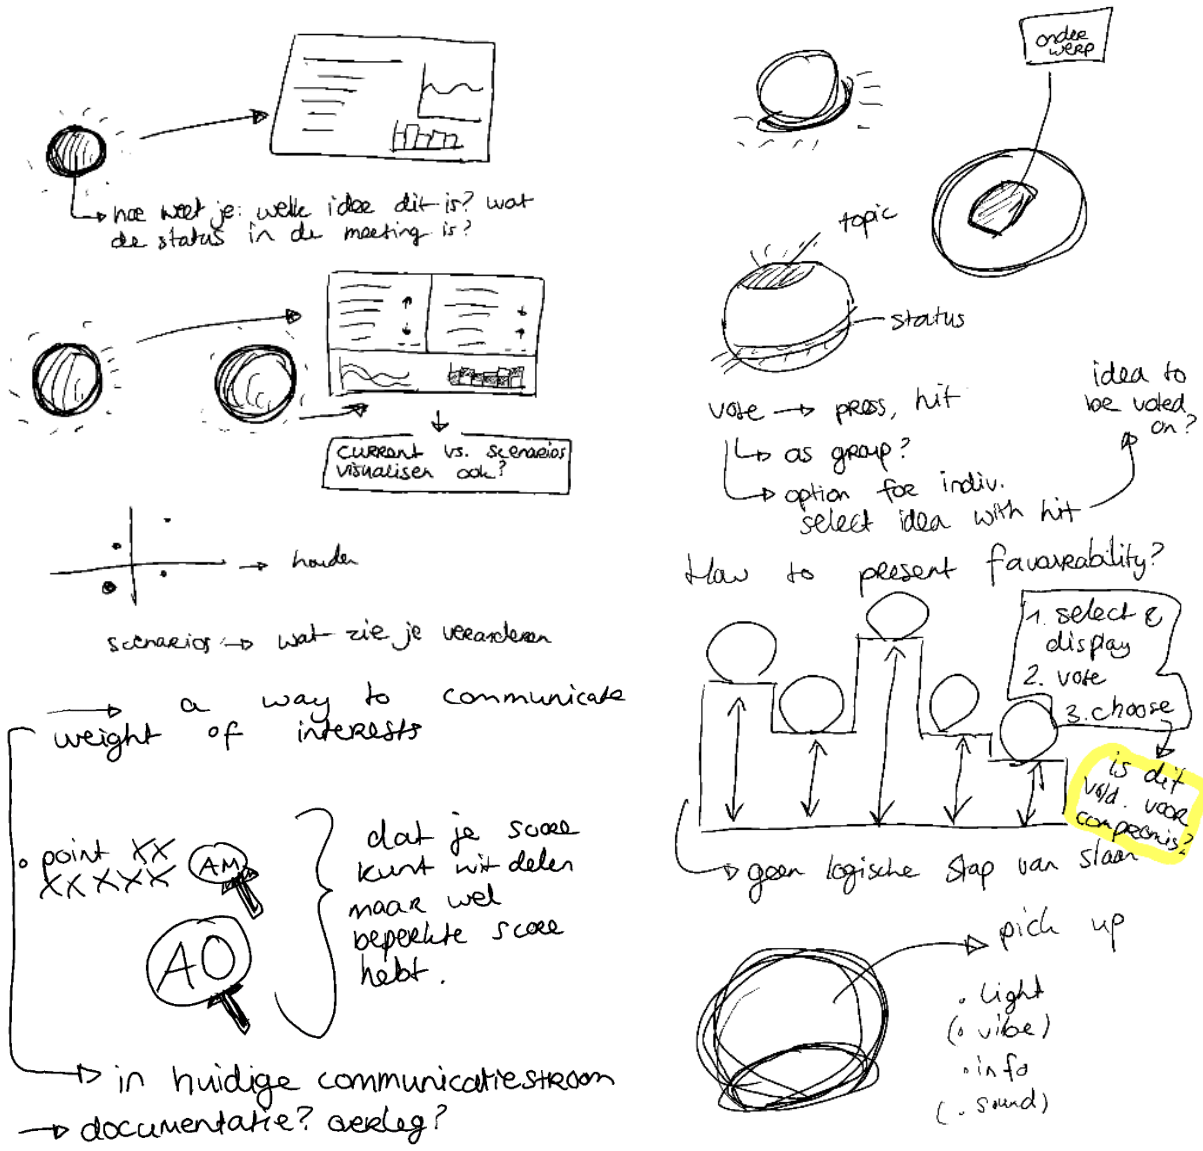 hoe weet je: welk idee dit is? wat
de status in de meeting is?
current vs. scenarios
visualiser ook?
houden
scenarios → wat zie je veranderen
→ a way to communicate
weight of interests
• point XX
XX XXX
AM
AO
dat je score
kunt uit delen
maar wel
beperkte score
hebt.
→ in huidige communicatiestroom
→ documentatie? overleg?
onder
werp
topic
status
vote → press, hit
→ as group?
→ option for indiv.
select idea with hit
idea to
be voted
on?
How to present favourability?
1. select &
display
2. vote
3. choose
is dit
vold. voor
compromis?
→ geen logische stap van slaan
pick up
• light
(• vibe)
• info
(• sound)